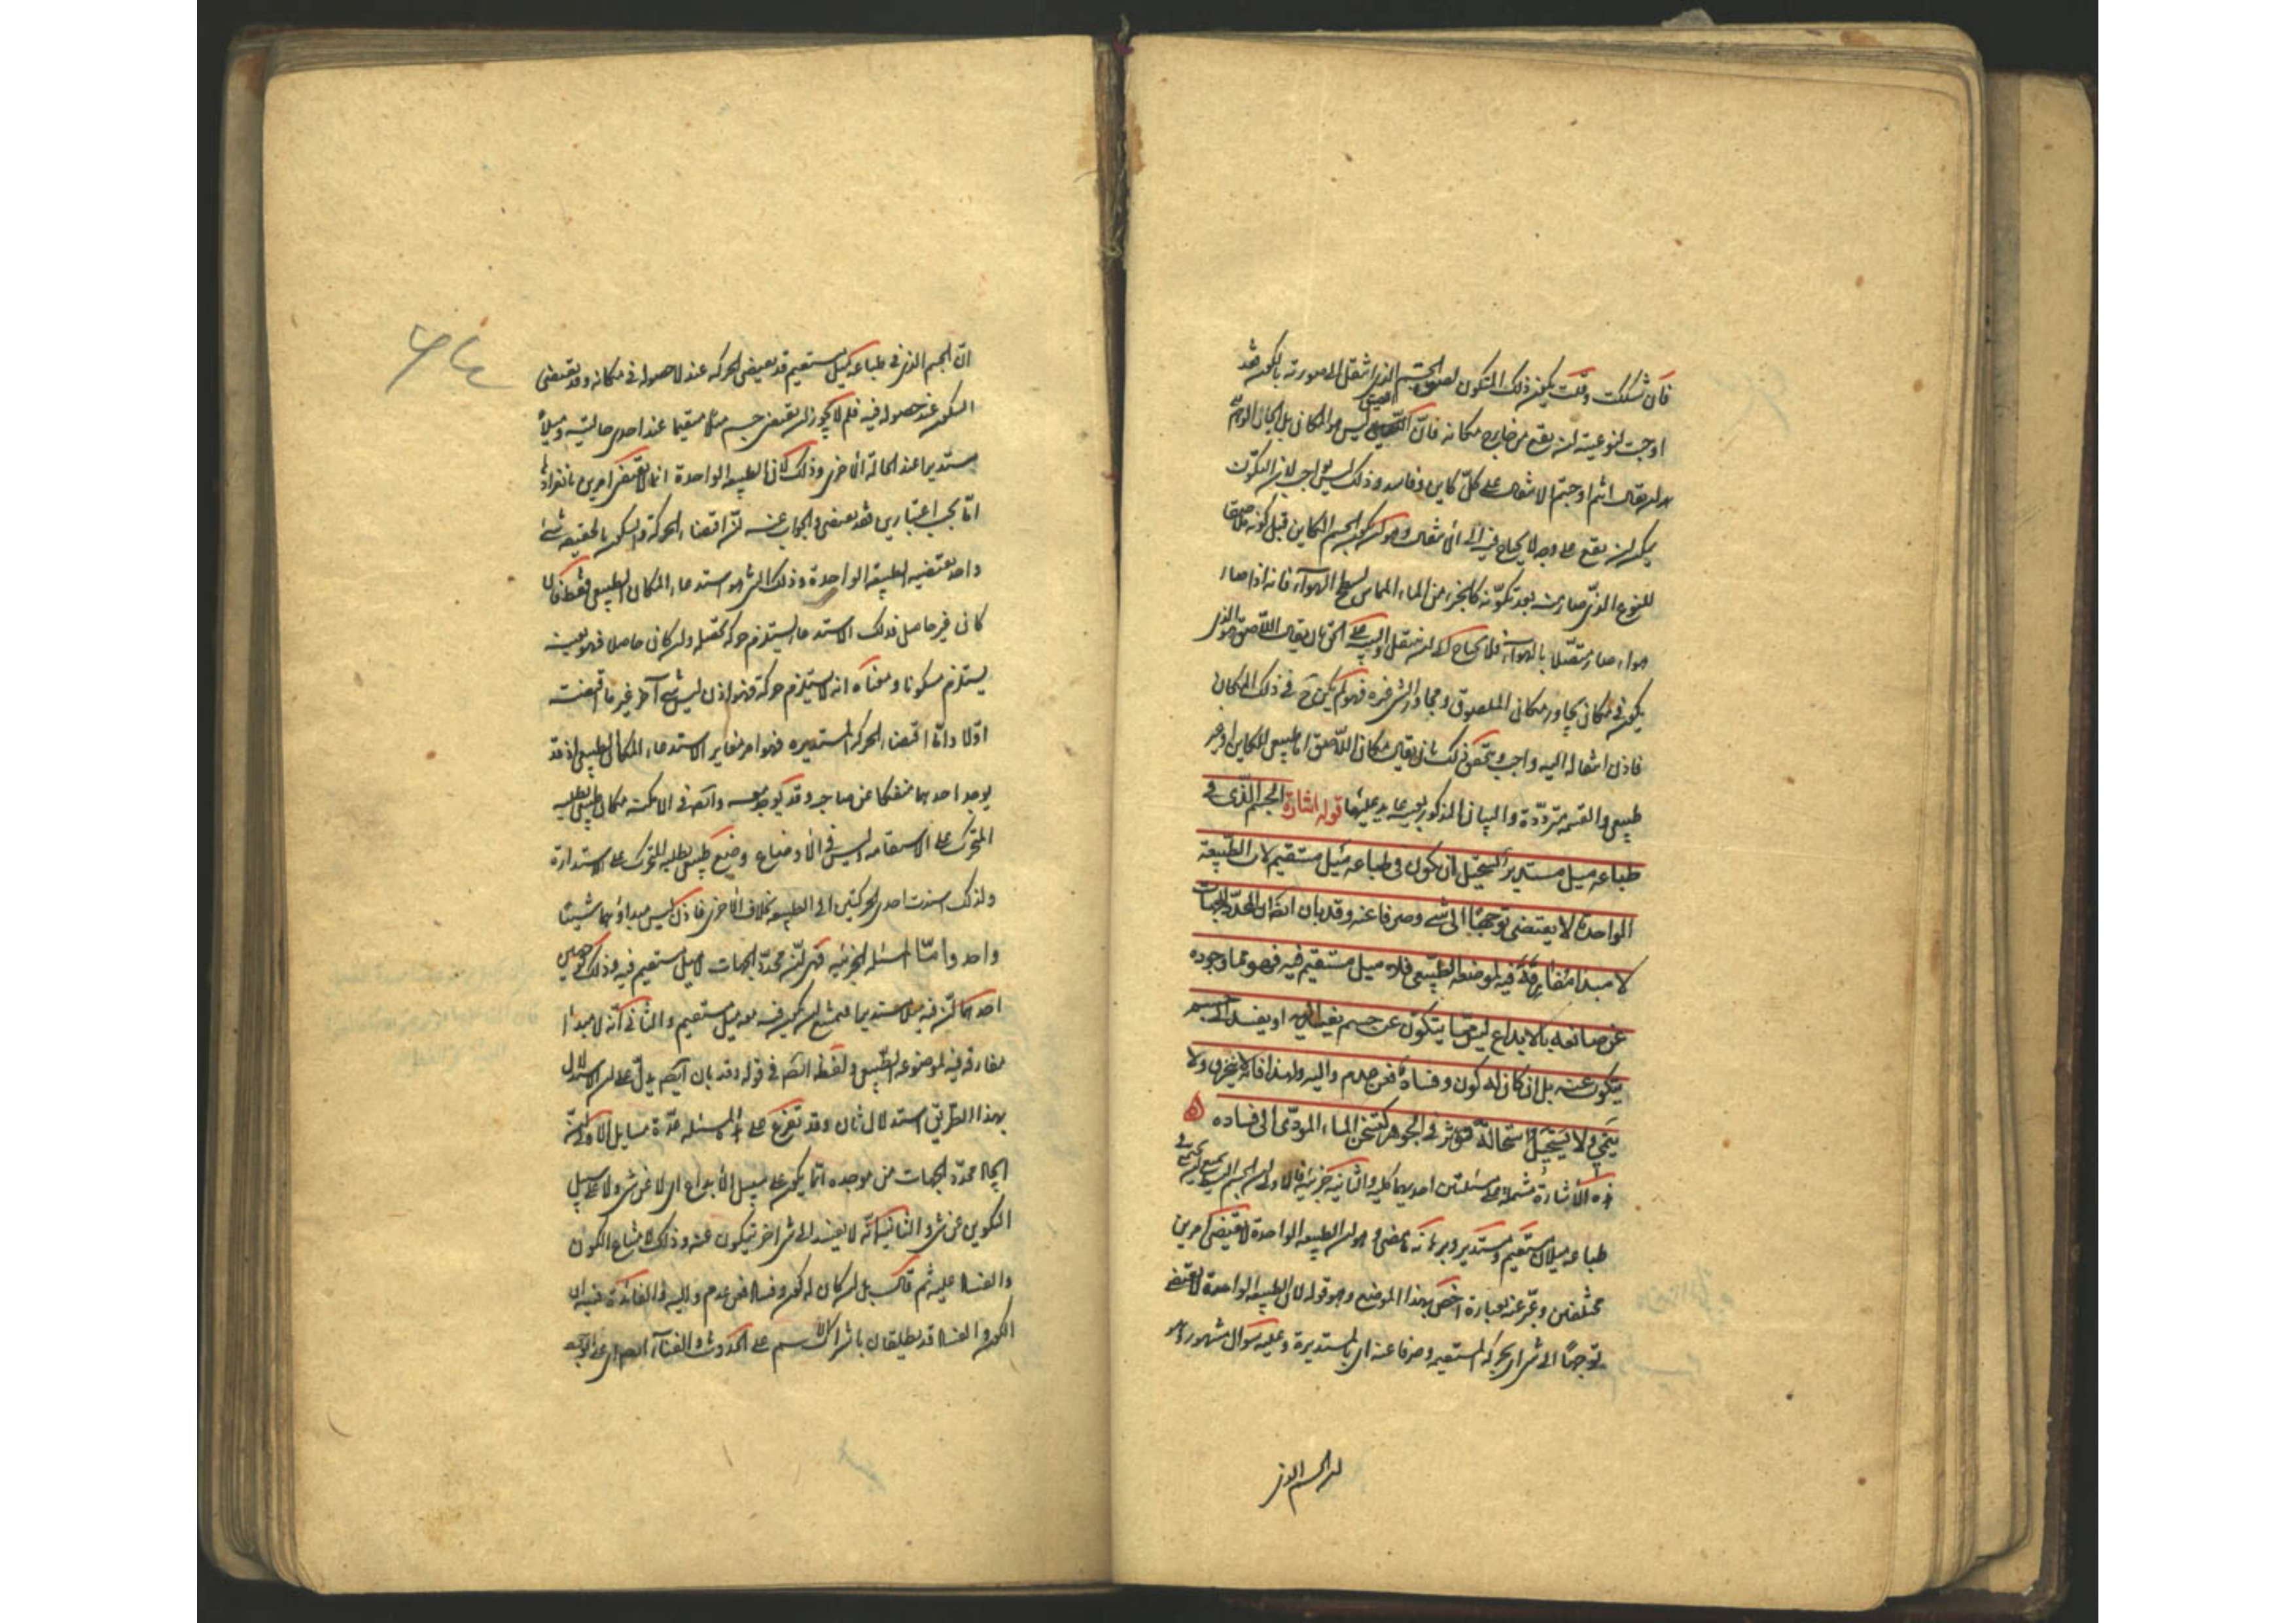 فان تشككت وقلت يكون ذلك المتكون لصورة الجسم الذى انتقل الى صورته بالكون فقد
اوجبت لنوعيته ان يقع من خارج مكانه فان اللصيق ليس هو المكان بل الجار
ان يقال انكم اوجبتم الانتقال على كل كاين وفاسد وذلك ليس بواجب لان التكون
يمكن ان يقع على وجه لا يحتاج فيه الى الانتقال وهو ان يكون الجسم الكاين قبل كونه ملاصقا
للنوع الذى صار منه بعد تكونه كالجزء من الماء المماس لسطح الهواء فانه اذا صار
هواء صار متصلا بالهواء فلا يحتاج الى ان ينتقل اليه بان يقال اللاصق هو الذى
يكون فى مكان يجاور مكان الملصوق ومجاور الشى غيره فهو لم يكن ح فى ذلك المكان
فاذن انتقاله اليه واجب ويتحقق ذلك بان يقال مكان اللاصق اما طبيعى للكاين او غير
طبيعى والقسمة مترددة والبيان المذكور بعينه عليها قوله اشارة الجسم الذى فى
طباعه ميل مستدير يستحيل ان يكون فى طباعه ميل مستقيم لان الطبيعة
الواحدة لا يقتضى توجها الى شى وصرفا عنه وقد بان ايضا ان المحدد للجهات
لا مبدا مفارقة فيه لموضعه الطبيعى فلا ميل مستقيم فيه فهو مما وجوده
عن صانعه بالابداع ليس مما يتكون عن جسم يفسد اليه او يفسد الى جسم
يتكون عنه بل ان كان له كون وفساد فعن عدم واليه ولهذا فانه لا ينخرق ولا
ينمى ولا يستحيل استحالة تؤثر فى الجوهر كتسخن الماء المودى الى فساده
هذه الاشارة مشتملة على مسئلتين احديهما كلية والثانية جزئية فالاولى ان الجسم البسيط يمتنع ان يجتمع فى
طباعه ميلان مستقيم ومستدير وبرهانه ما مضى وهو ان الطبيعة الواحدة لا يقتضى امرين
مختلفين وعبر عنه بعبارة اخص بهذا الموضع وهو قوله لان الطبيعة الواحدة لا يقتضى
توجها الى شى اى بالحركة المستقيمة وصرفا عنه اى بالمستديرة وعليه سوال مشهور وهو
ان الجسم الذى
ان الجسم الذى فى طباعه ميل مستقيم قد يقتضى الحركة عند لا حصوله فى مكانه وقد يقتضى
السكون عند حصوله فيه فلم لا يجوز ان يقتضى جسم ميلا مستقيما عند احدى حالتيه وميلا
مستديرا عند الحالة الاخرى وذلك لان الطبيعة الواحدة انما لا يقتضى امرين بانفرادها
اما بحسب اعتبارين فقد يقتضى والجواب عنه ان اقتضاء الحركة والسكون بالحقيقة شى
واحد يقتضيه الطبيعة الواحدة وذلك الشى هو استدعاء المكان الطبيعى فقط فان
كان غير حاصل فذلك الاستدعاء يستلزم حركة تحصله وان كان حاصلا فهو بعينه
يستلزم سكونا ومعناه انه لا يستلزم حركة فهو اذن ليس بشى آخر غير ما اقتضته
اولا واما اقتضاء الحركة المستديرة فهو امر مغاير لاستدعاء المكان الطبيعى اذ قد
يوجد احدهما منفكا عن صاحبه وقد يوجد معه وايضا فى الامكنة مكان طبيعى يطلبه
المتحرك على الاستقامة وليس فى الاوضاع وضع طبيعى يطلبه المتحرك على الاستدارة
ولذلك اسندت احدى الحركتين الى الطبيعة بخلاف الاخرى فاذن ليس مبداؤهما شيئا
واحدا واما المسئلة الجزئية فهى ان محدد الجهات لا ميل مستقيم فيه وذلك لوجهين
احدهما ان فيه ميلا مستديرا فيمتنع ان يكون فيه معه ميل مستقيم والثانى انه لا مبدأ
مفارقة فيه لموضعه الطبيعى ولفظة ايضا فى قوله وقد بان ايضا يدل على ان الاستدلال
بهذا الطريق استدلال ثان وقد تفرع على هذه المسئلة عدة مسايل الاولى ان
ايجاد محدد الجهات من موجده انما يكون على سبيل الابداع اى لا عن شى ولا على سبيل
التكوين عن شى والثانية انه لا يفسد الى شى آخر يتكون عنه وذلك لامتناع الكون
والفساد عليه ثم قال بل ان كان له كون وفساد فعن عدم واليه والفائدة فيه ان
الكون والفساد قد يطلقان باشتراك الاسم على الحدوث والفناء ايضا